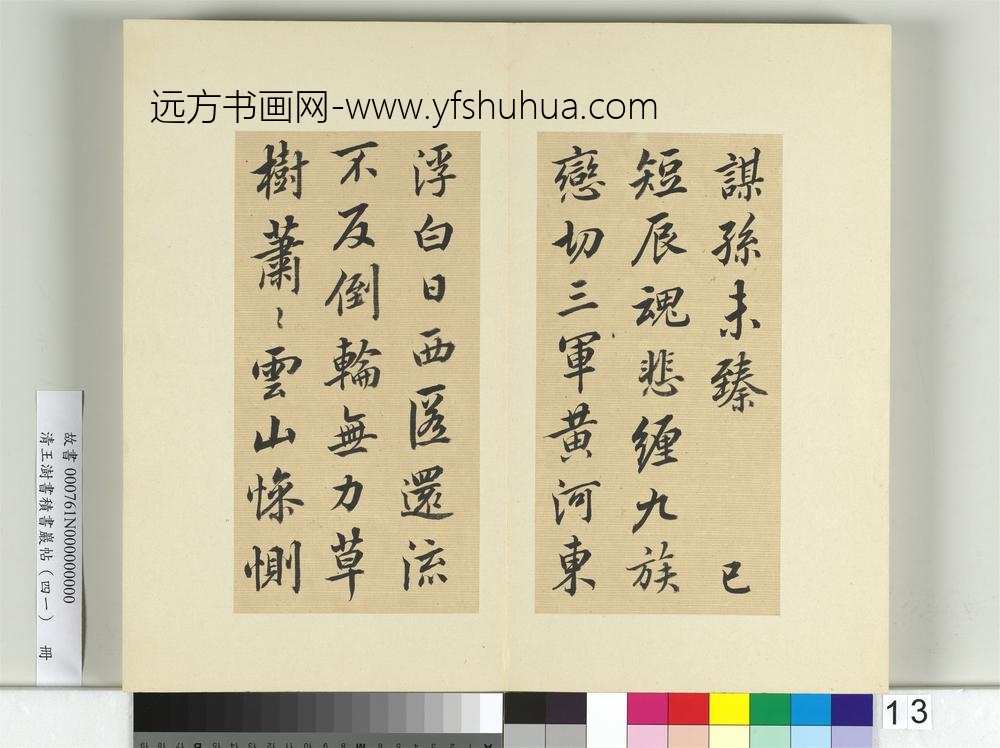 远方书画网-www.yfshuhua.com
謀孫未臻 已
短辰魂悲纏九族
戀切三軍黃河東
浮白日西匿還流
不反倒輪無力草
樹蕭〻雲山慘惻
故書 000761N000000000
清王澍書積書巖帖(四一) 冊
13